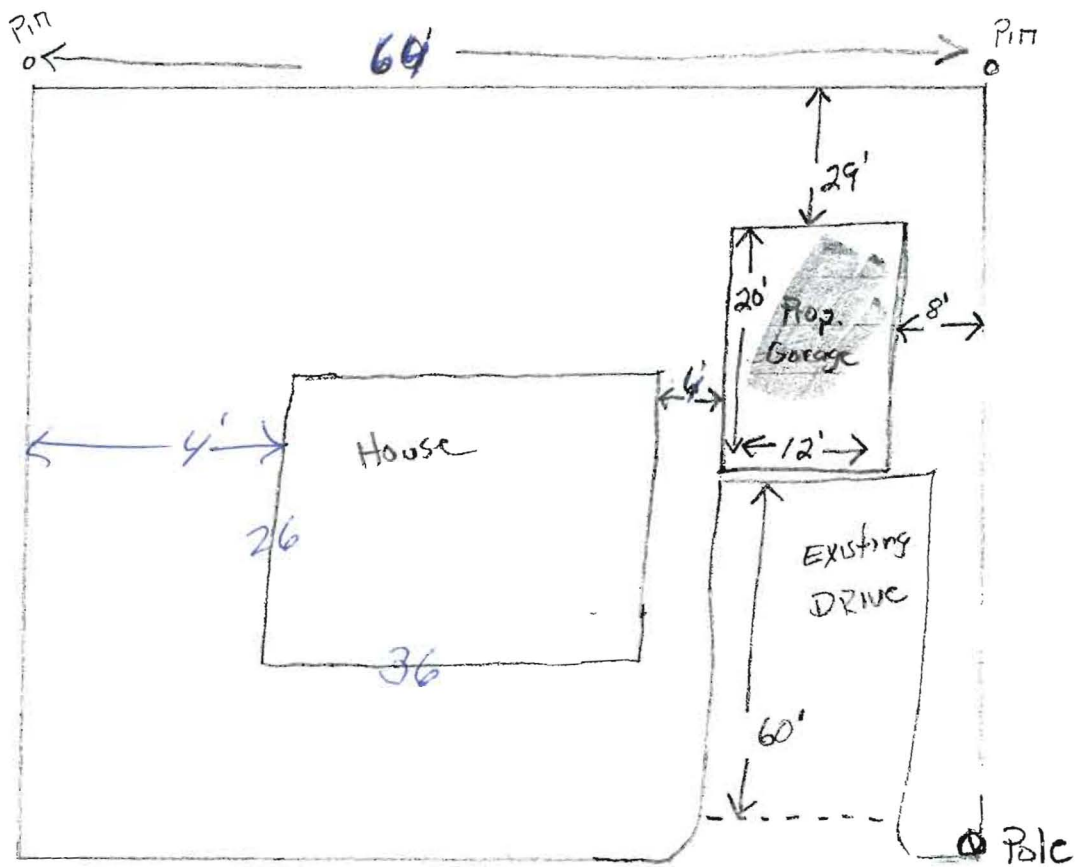 Pin
64'
Pin
29'
20'
Prop.
Garage
8'
4'
12'
4'
House
26
36
Existing
DRIVE
60'
Pole